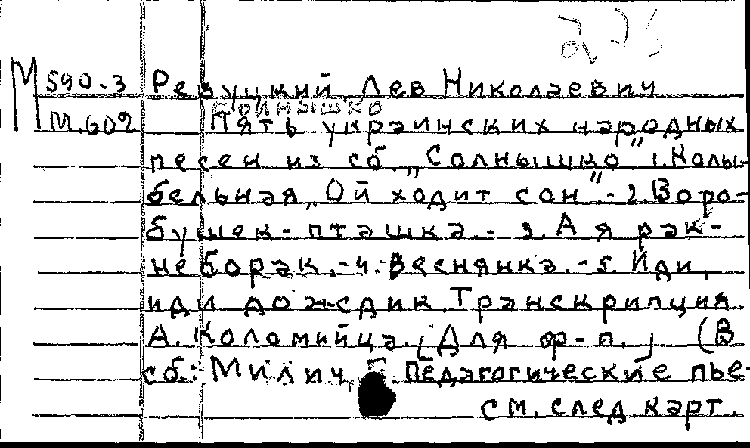 М 590-3 Ревуцкий Лев Николаевич
М.602 Пять украинских народных
песен из сб „Солнышко" 1. Колы-
бельная „Ой ходит сон". - 2. Воро-
бушек - пташка. - 3. А я рак -
неборак. - 4. Веснянка. - 5. Иди,
иди дождик. Транскрипция
А. Коломийца. [Для ф-п.] (В
сб.: Милич Б Педагогические пье-
см. след карт.